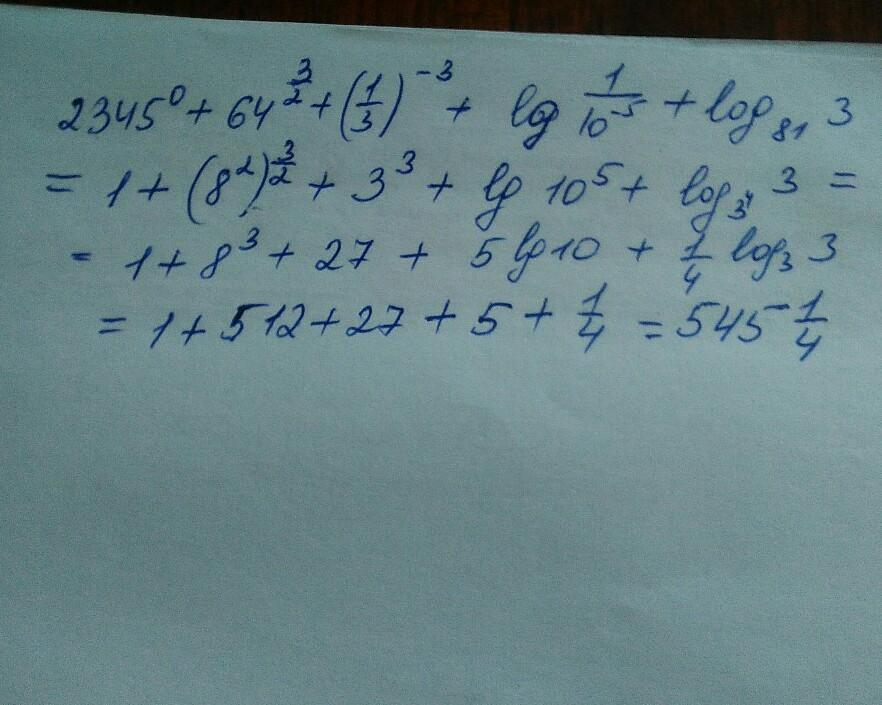 2345⁰ + 64^(3/2) + (1/3)^(-3) + lg 1/10^(-5) + log₈₁ 3
= 1 + (8²)^(3/2) + 3³ + lg 10⁵ + log_(3⁴) 3 =
= 1 + 8³ + 27 + 5 lg 10 + 1/4 log₃ 3
= 1 + 512 + 27 + 5 + 1/4 = 545 1/4